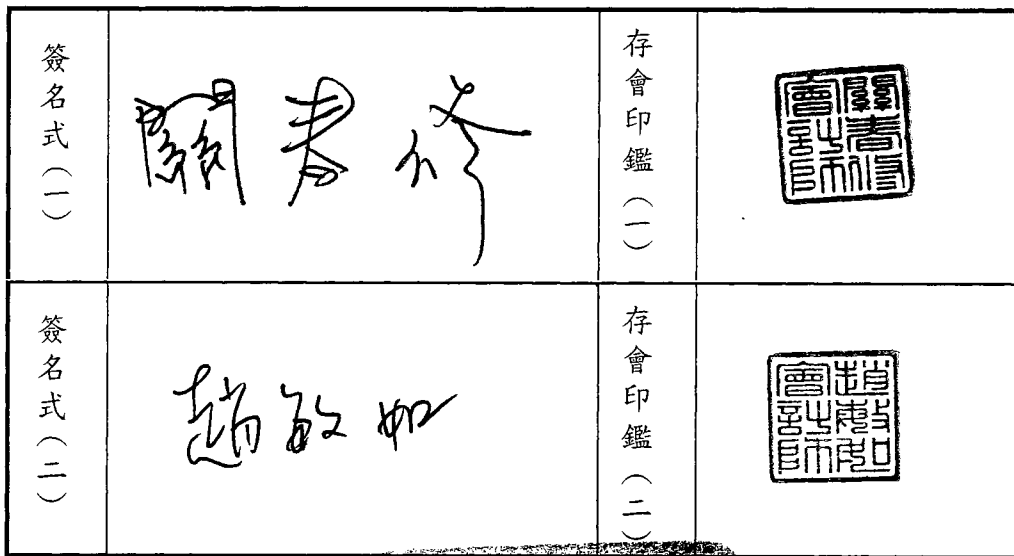 簽名式（一）
關春修
存會印鑑（一）
關春修
會計師
簽名式（二）
趙敏如
存會印鑑（二）
趙敏如
會計師